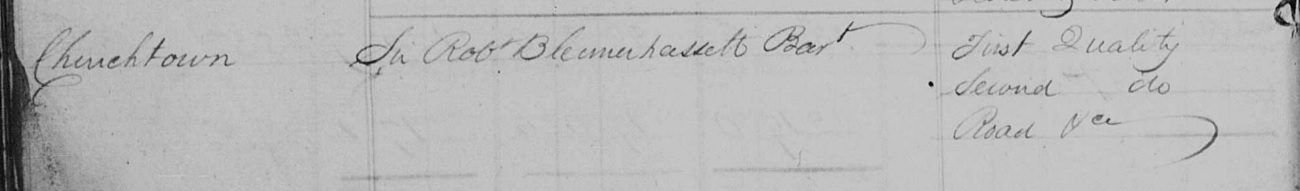 Churchtown Sir Robt Blennerhassett Bart First Quality
Second do
Road &ca